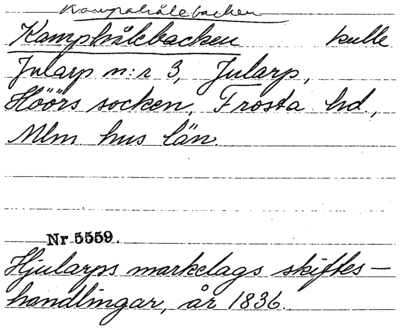 Kampahålebacken
Kamphålebacken kulle
Jularp n:r 3, Jularp,
Höörs socken, Frosta hd,
Mlm hus län
Nr 5559.
Hjularps markelags skiftes-
handlingar, år 1836.